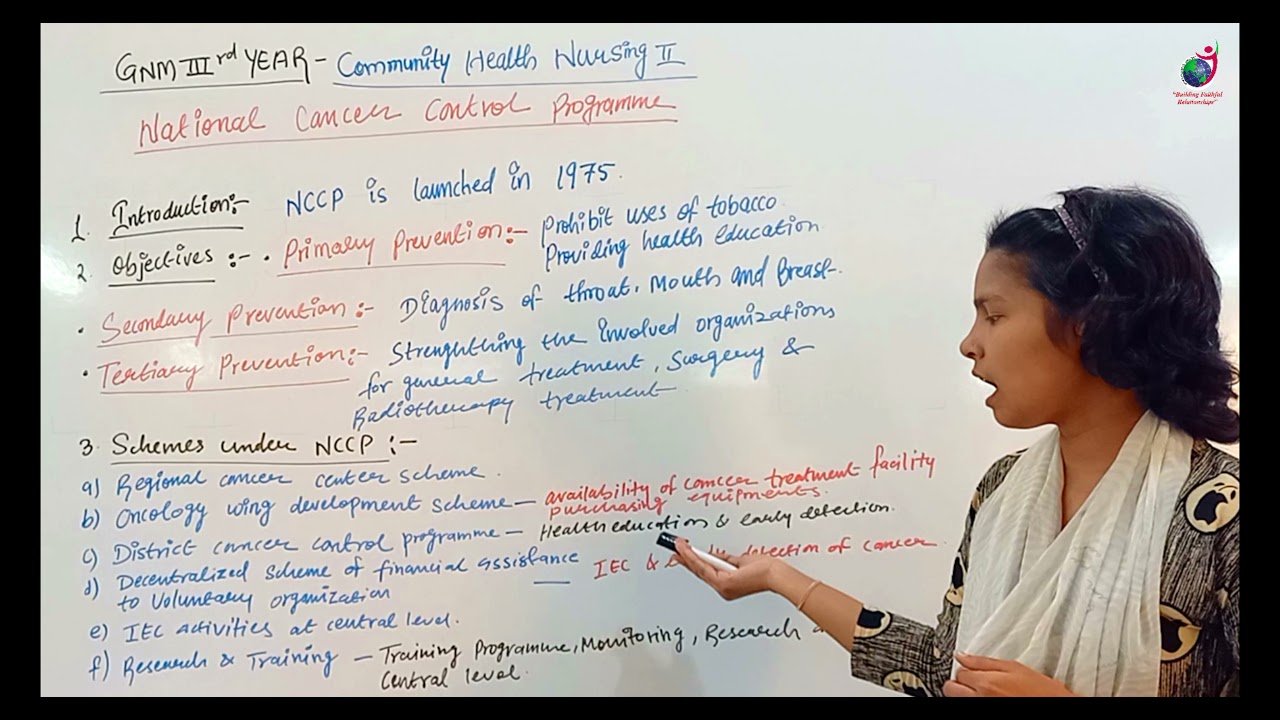 GNM III rd YEAR - Community Health Nursing II
National Cancer Control Programme
"Building Faithful
Relationships"
1. Introduction:- NCCP is launched in 1975.
2. Objectives :- • Primary Prevention :- Prohibit uses of tobacco.
Providing health education
• Secondary Prevention :- Diagnosis of throat, Mouth and Breast.
• Tertiary Prevention :- Strenghthing the involved organizations
for general treatment, Surgery &
Radiotherapy treatment
3. Schemes under NCCP :-
a) Regional cancer center scheme.
b) Oncology wing development scheme - availability of cancer treatment facility
purchasing equipments.
c) District cancer control programme - Health education & early detection.
d) Decentralized scheme of financial assistance
to voluntary organization — IEC & detection of cancer.
e) IEC activities at central level.
f) Research & Training - Training Programme, Monitoring, Research
Central level.